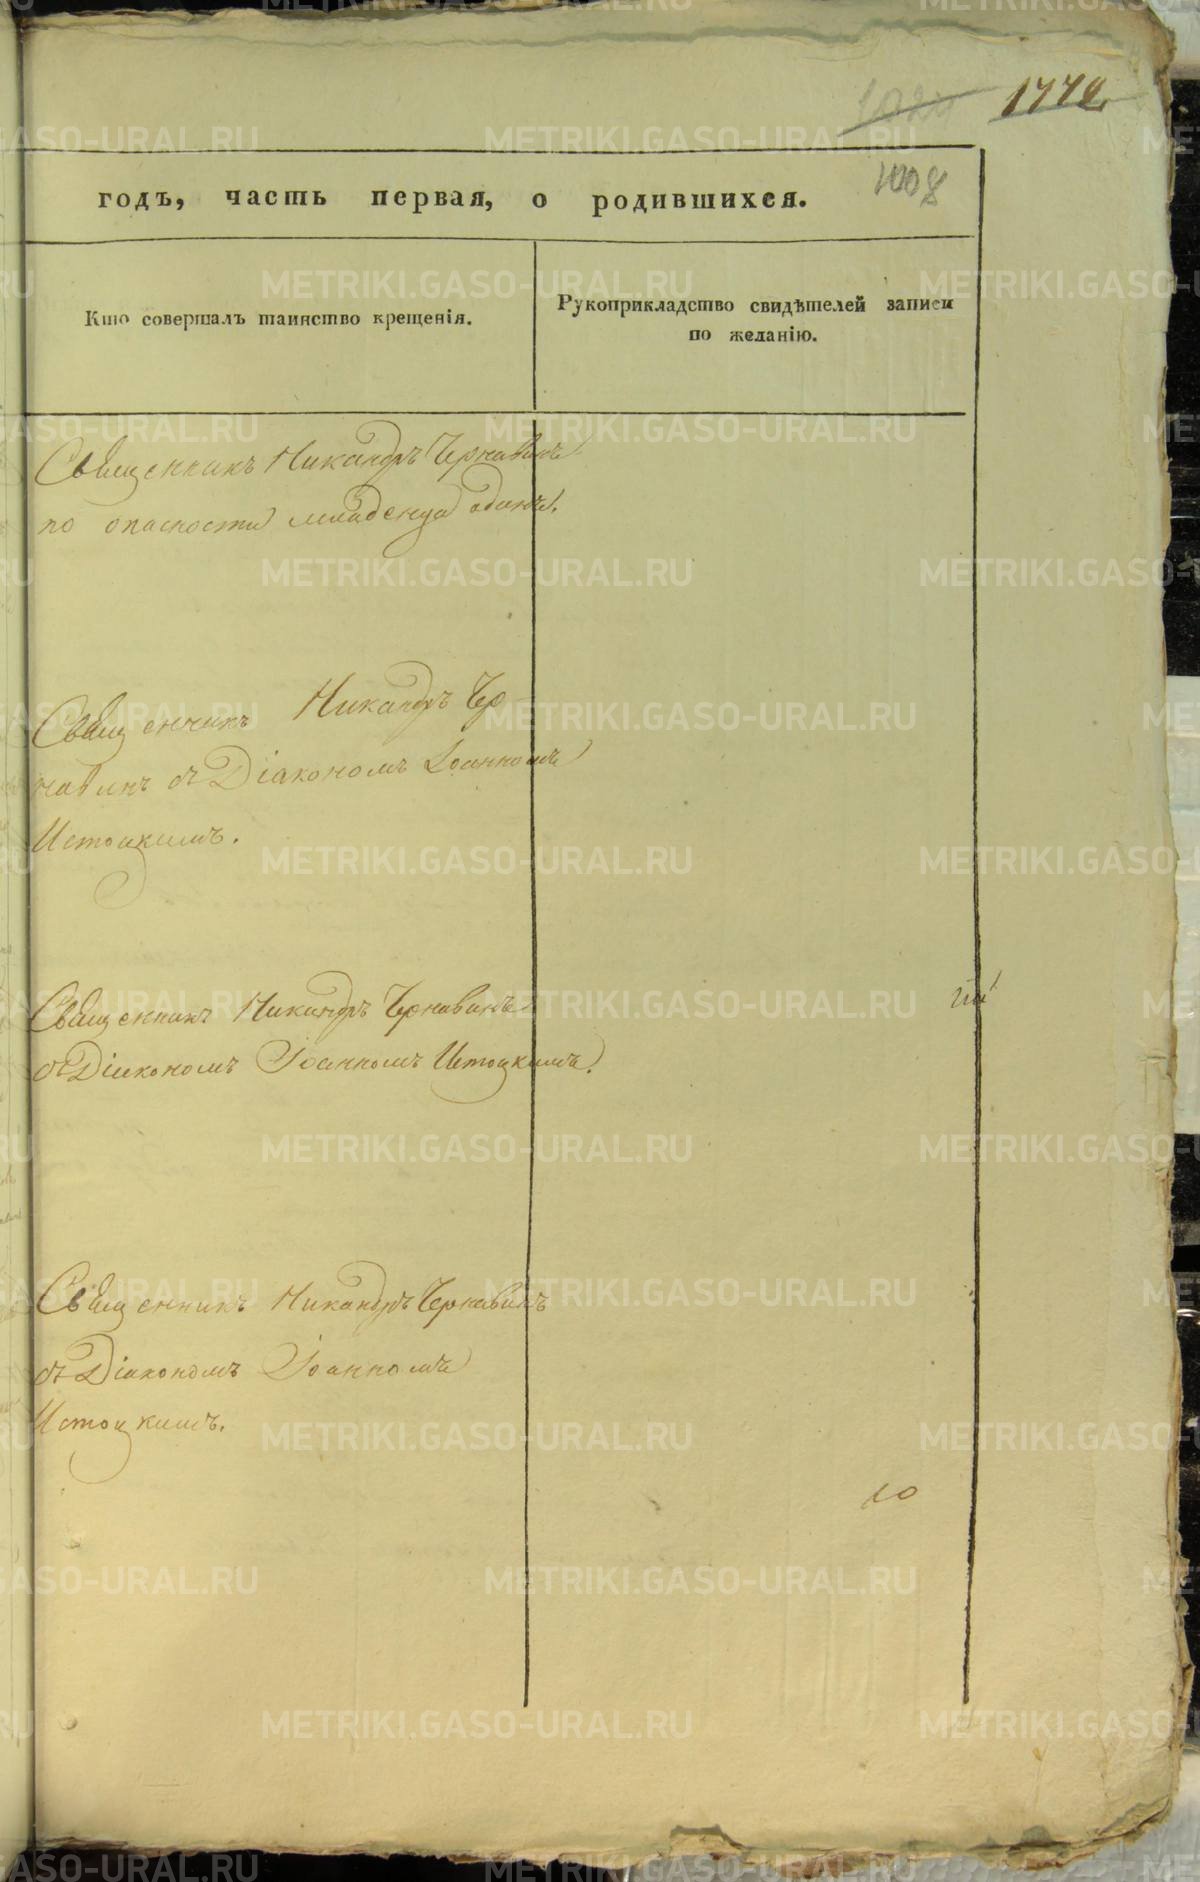 1008
годъ, часть первая, о родившихся.
Кто совершалъ таинство крещенія.
Рукоприкладство свидѣтелей записи
по желанію.
Священникъ Никандръ Чернавинъ
по опасности младенца одинъ.
Священникъ Никандръ Чер
навинъ съ Діакономъ Іоанномъ
Истоцкимъ.
Священникъ Никандръ Чернавинъ
съ Діакономъ Іоанномъ Истоцкимъ.
Священникъ Никандръ Чернавинъ
съ Діакономъ Іоанномъ
Истоцкимъ.
METRIKI.GASO-URAL.RU